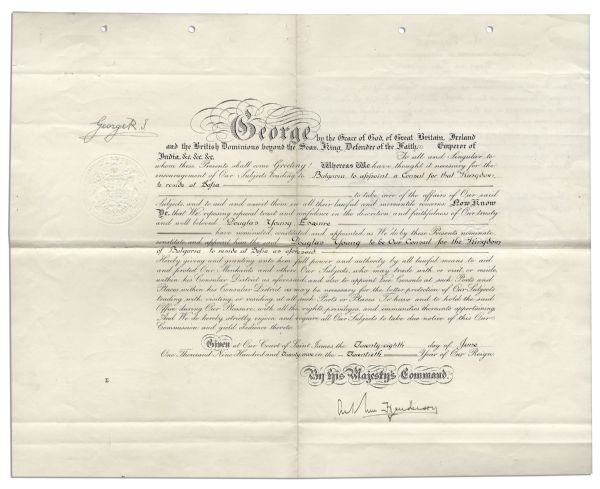 George R.I.
George by the Grace of God, of Great Britain, Ireland
and the British Dominions beyond the Seas, King, Defender of the Faith, Emperor of
India, &c. &c. &c. To all and Singular to
whom these Presents shall come Greeting! Whereas We have thought it necessary for the
encouragement of Our Subjects trading to Bulgaria to appoint a Consul for that Kingdom,
to reside at Sofia
to take care of the affairs of Our said
Subjects and to aid and assist them in all their lawful and mercantile concerns Now Know
Ye, that We, reposing especial trust and confidence in the discretion and faithfulness of Our trusty
and well beloved Douglas Young, Esquire
have nominated, constituted and appointed, as We do by these Presents nominate,
constitute and appoint him the said Douglas Young to be Our Consul for the Kingdom
of Bulgaria to reside at Sofia as aforesaid
Hereby giving and granting unto him full power and authority by all lawful means to aid
and protect Our Merchants and others Our Subjects, who may trade with or visit, or reside
within his Consular District as aforesaid, and also to appoint Vice Consuls at such Ports and
Places within his Consular District as may be necessary for the better protection of Our Subjects
trading with, visiting, or residing at all such Ports or Places To have and to hold the said
Office during Our Pleasure, with all the rights, privileges, and immunities thereunto appertaining.
And We do hereby strictly enjoin and require all Our Subjects to take due notice of this Our
Commission and yield Obedience thereto.
Given at Our Court of Saint James, the Twenty-eighth day of June
One Thousand Nine Hundred and Twenty-nine in the Twentieth Year of Our Reign.
By His Majesty's Command.
Arthur Henderson